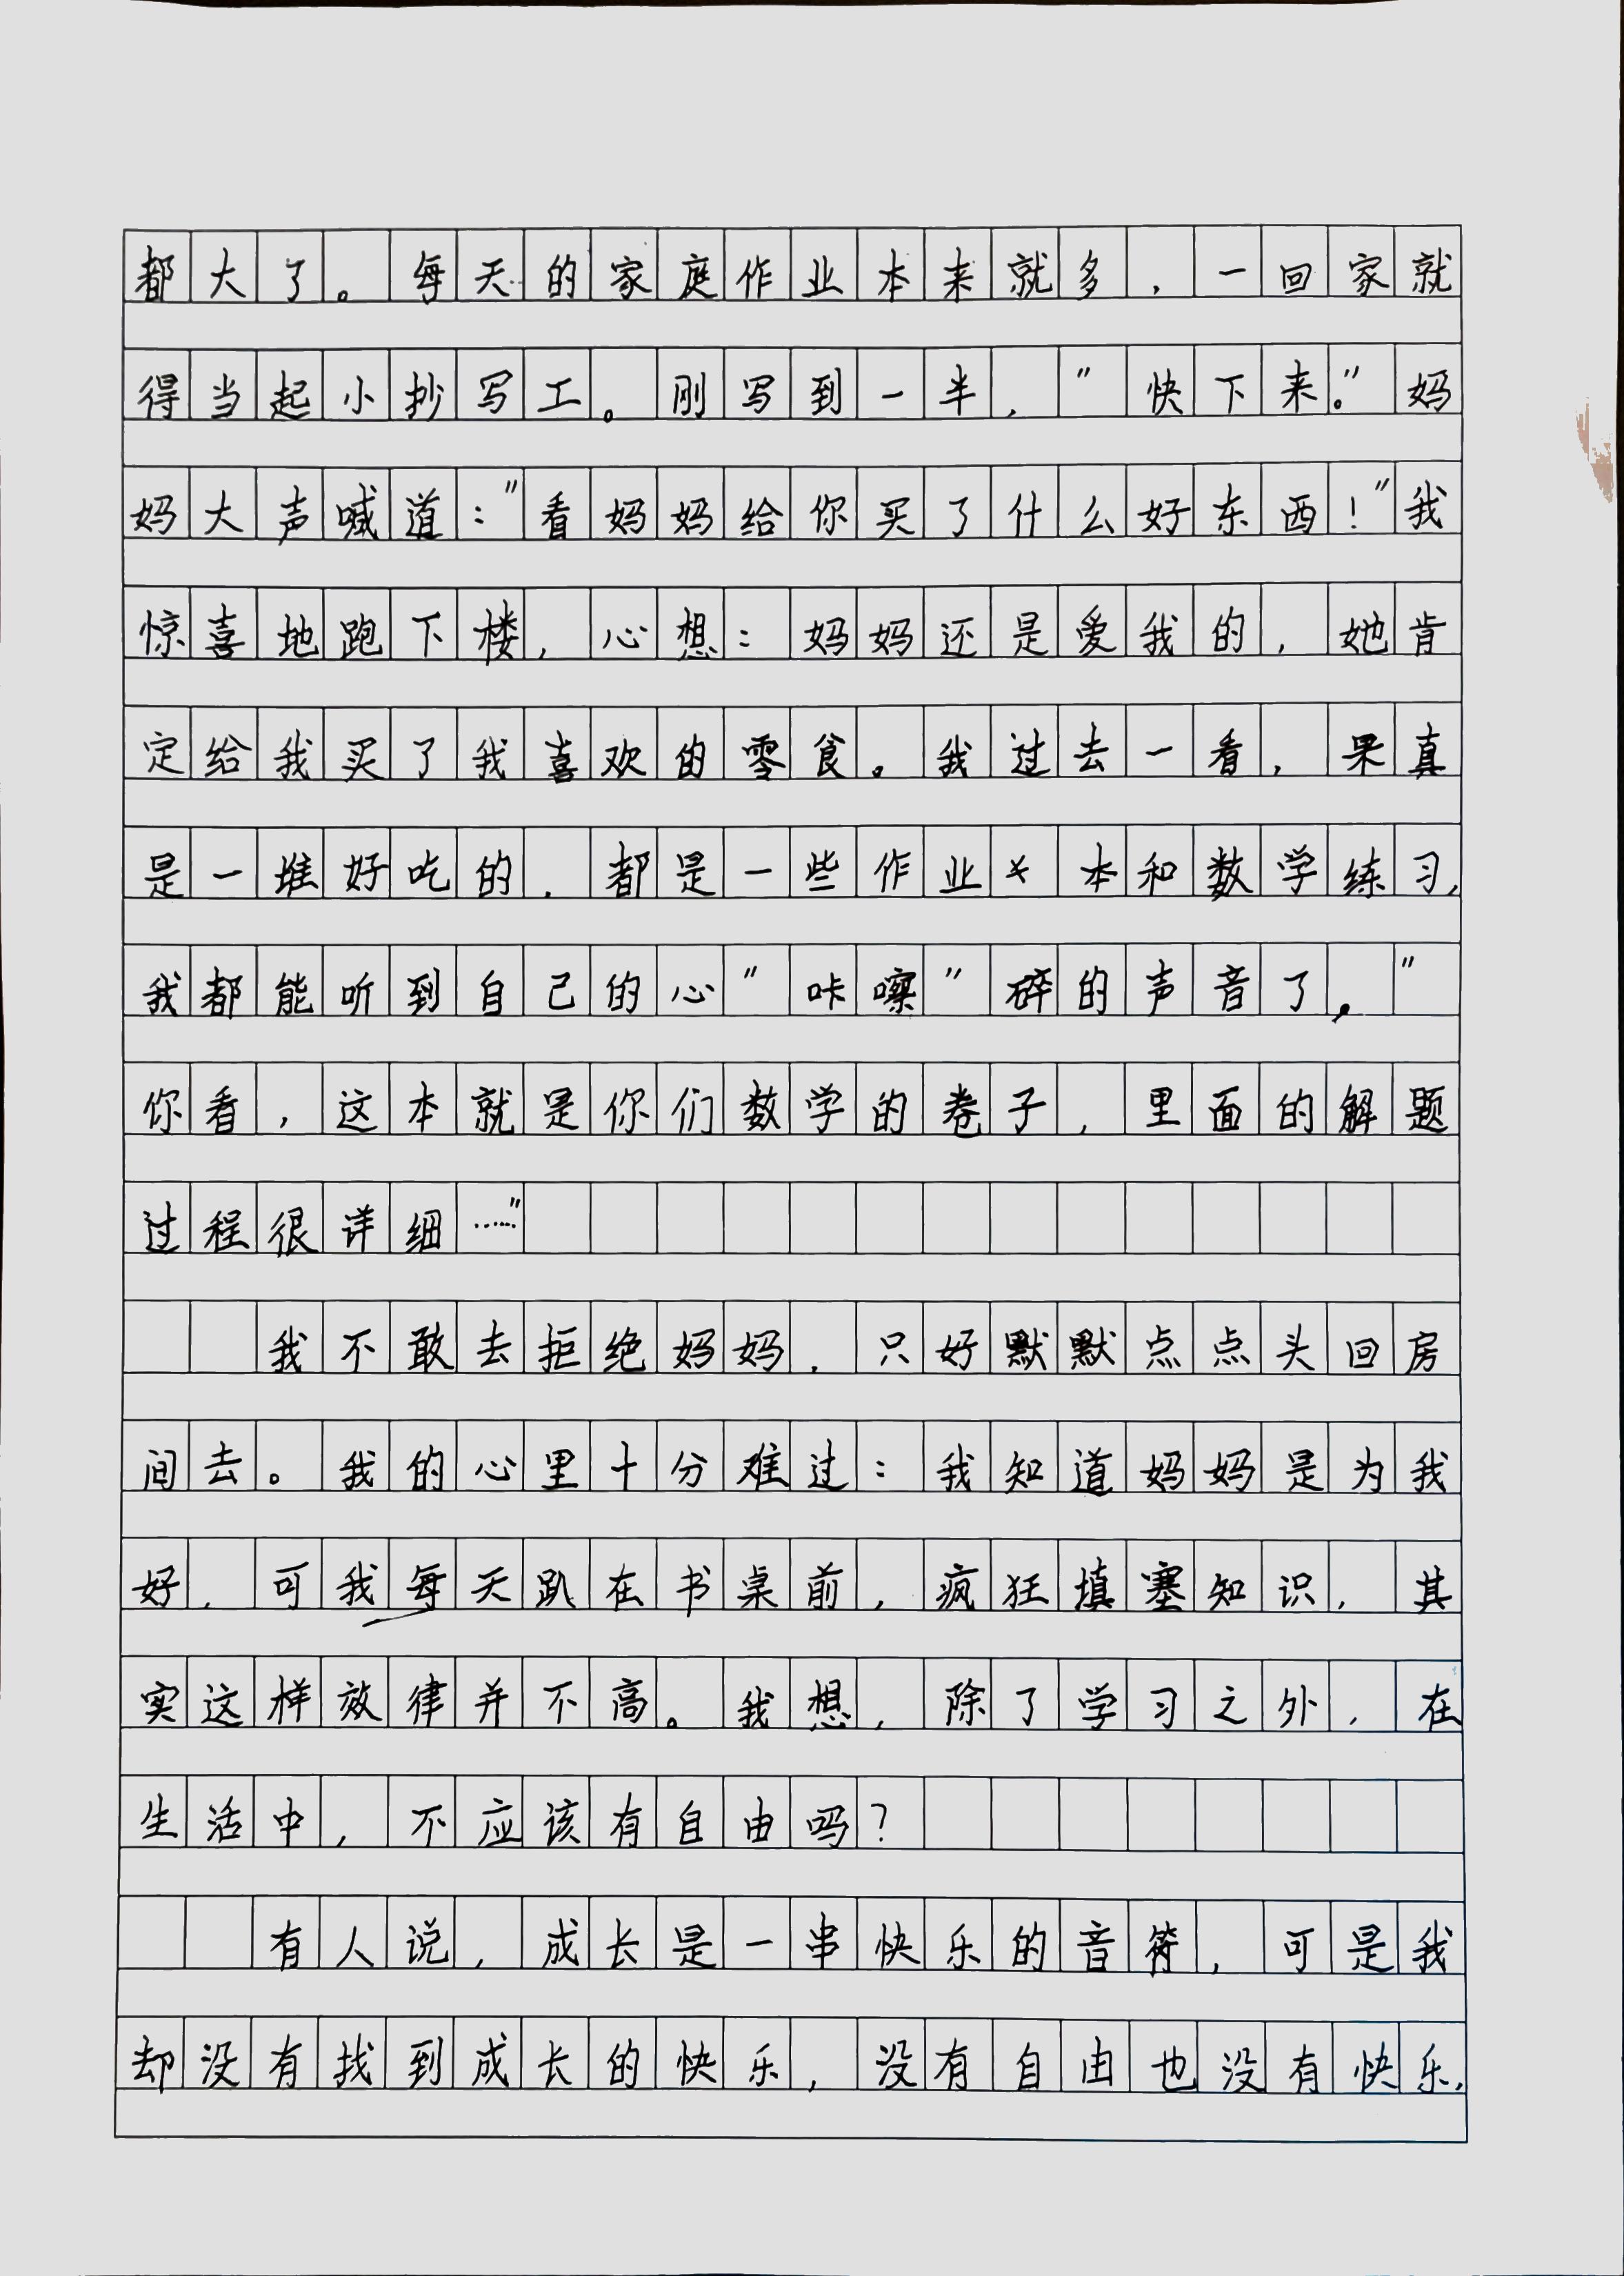 都大了。每天的家庭作业本来就多，一回家就
得当起小抄写工。刚写到一半，"快下来。"妈
妈大声喊道："看妈妈给你买了什么好东西！"我
惊喜地跑下楼，心想：妈妈还是爱我的，她肯
定给我买了我喜欢的零食。我过去一看，果真
是一堆好吃的，都是一些作业本和数学练习，
我都能听到自己的心"咔嚓"碎的声音了。"
你看，这本就是你们数学的卷子，里面的解题
过程很详细……"
我不敢去拒绝妈妈，只好默默点点头回房
间去。我的心里十分难过：我知道妈妈是为我
好，可我每天趴在书桌前，疯狂填塞知识，其
实这样效律并不高。我想，除了学习之外，在
生活中，不应该有自由吗？
有人说，成长是一串快乐的音符，可是我
却没有找到成长的快乐，没有自由也没有快乐，